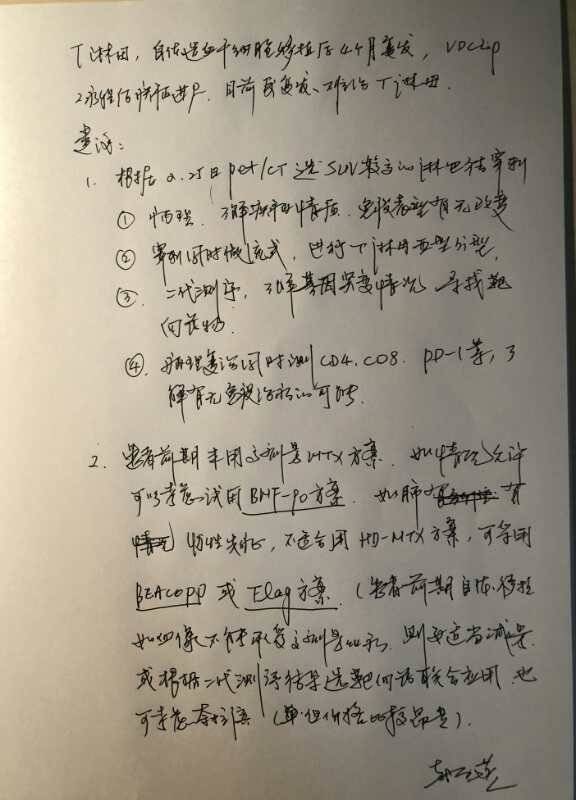 T淋母, 自体造血干细胞移植后4个月复发, VDCLp
2疗程后肺部进展. 目前 复发、难治 T淋母.
建议:
1. 根据2.25日pet/CT 选SUV较高的淋巴结穿刺
① 病理. 了解 情况. 免疫表型有无改变
② 穿刺同时做流式, 进行T淋母亚型分型,
③. 二代测序, 了解基因突变情况, 寻找靶
向药物.
④. 病理 同时测CD4. CD8. PD-1等, 了
解有无免疫治疗的可能.
2. 患者前期未用大剂量MTX方案. 如情况允许
可以考虑试用BMF-90方案. 如肺 有
慢性炎症, 不适合用HD-MTX方案, 可客用
BEACOPP 或 Flag方案. (患者前期自体移植
如 不能承受大剂量化疗. 则要适当减量
或根据二代测序结果选靶向药联合应用. 也
可考虑 (单 价格比较昂贵).